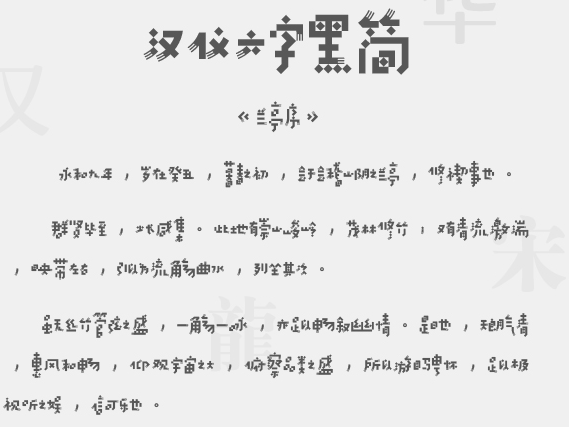 汉仪六字黑简
《兰亭序》
永和九年，岁在癸丑，暮春之初，会于会稽山阴之兰亭，修禊事也。
群贤毕至，少长咸集。此地有崇山峻岭，茂林修竹；又有清流激湍
，映带左右，引以为流觞曲水，列坐其次。
虽无丝竹管弦之盛，一觞一咏，亦足以畅叙幽情。是日也，天朗气清
，惠风和畅，仰观宇宙之大，俯察品类之盛，所以游目骋怀，足以极
视听之娱，信可乐也。
华
宋
龍